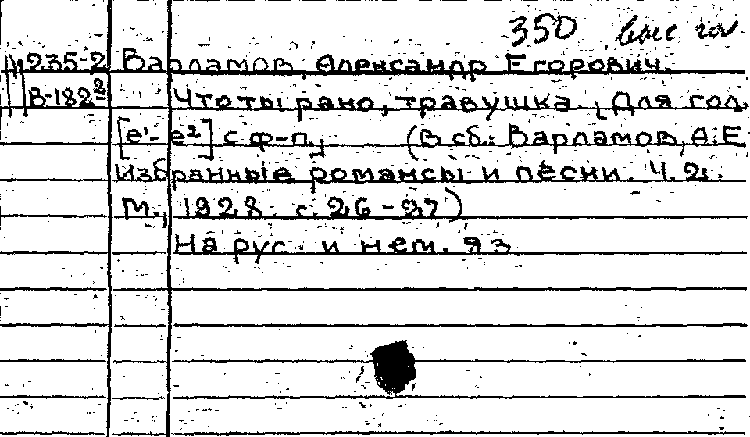 350 выс гол
Н235-2 Варламов, Александр Егорович.
В-182² Что ты рано, травушка. [Для гол.
[е¹-е²] с ф-п.] (В сб.: Варламов, А.Е.
Избранные романсы и песни. Ч. 2.
М., 1928. с. 26-27)
На рус. и нем. яз